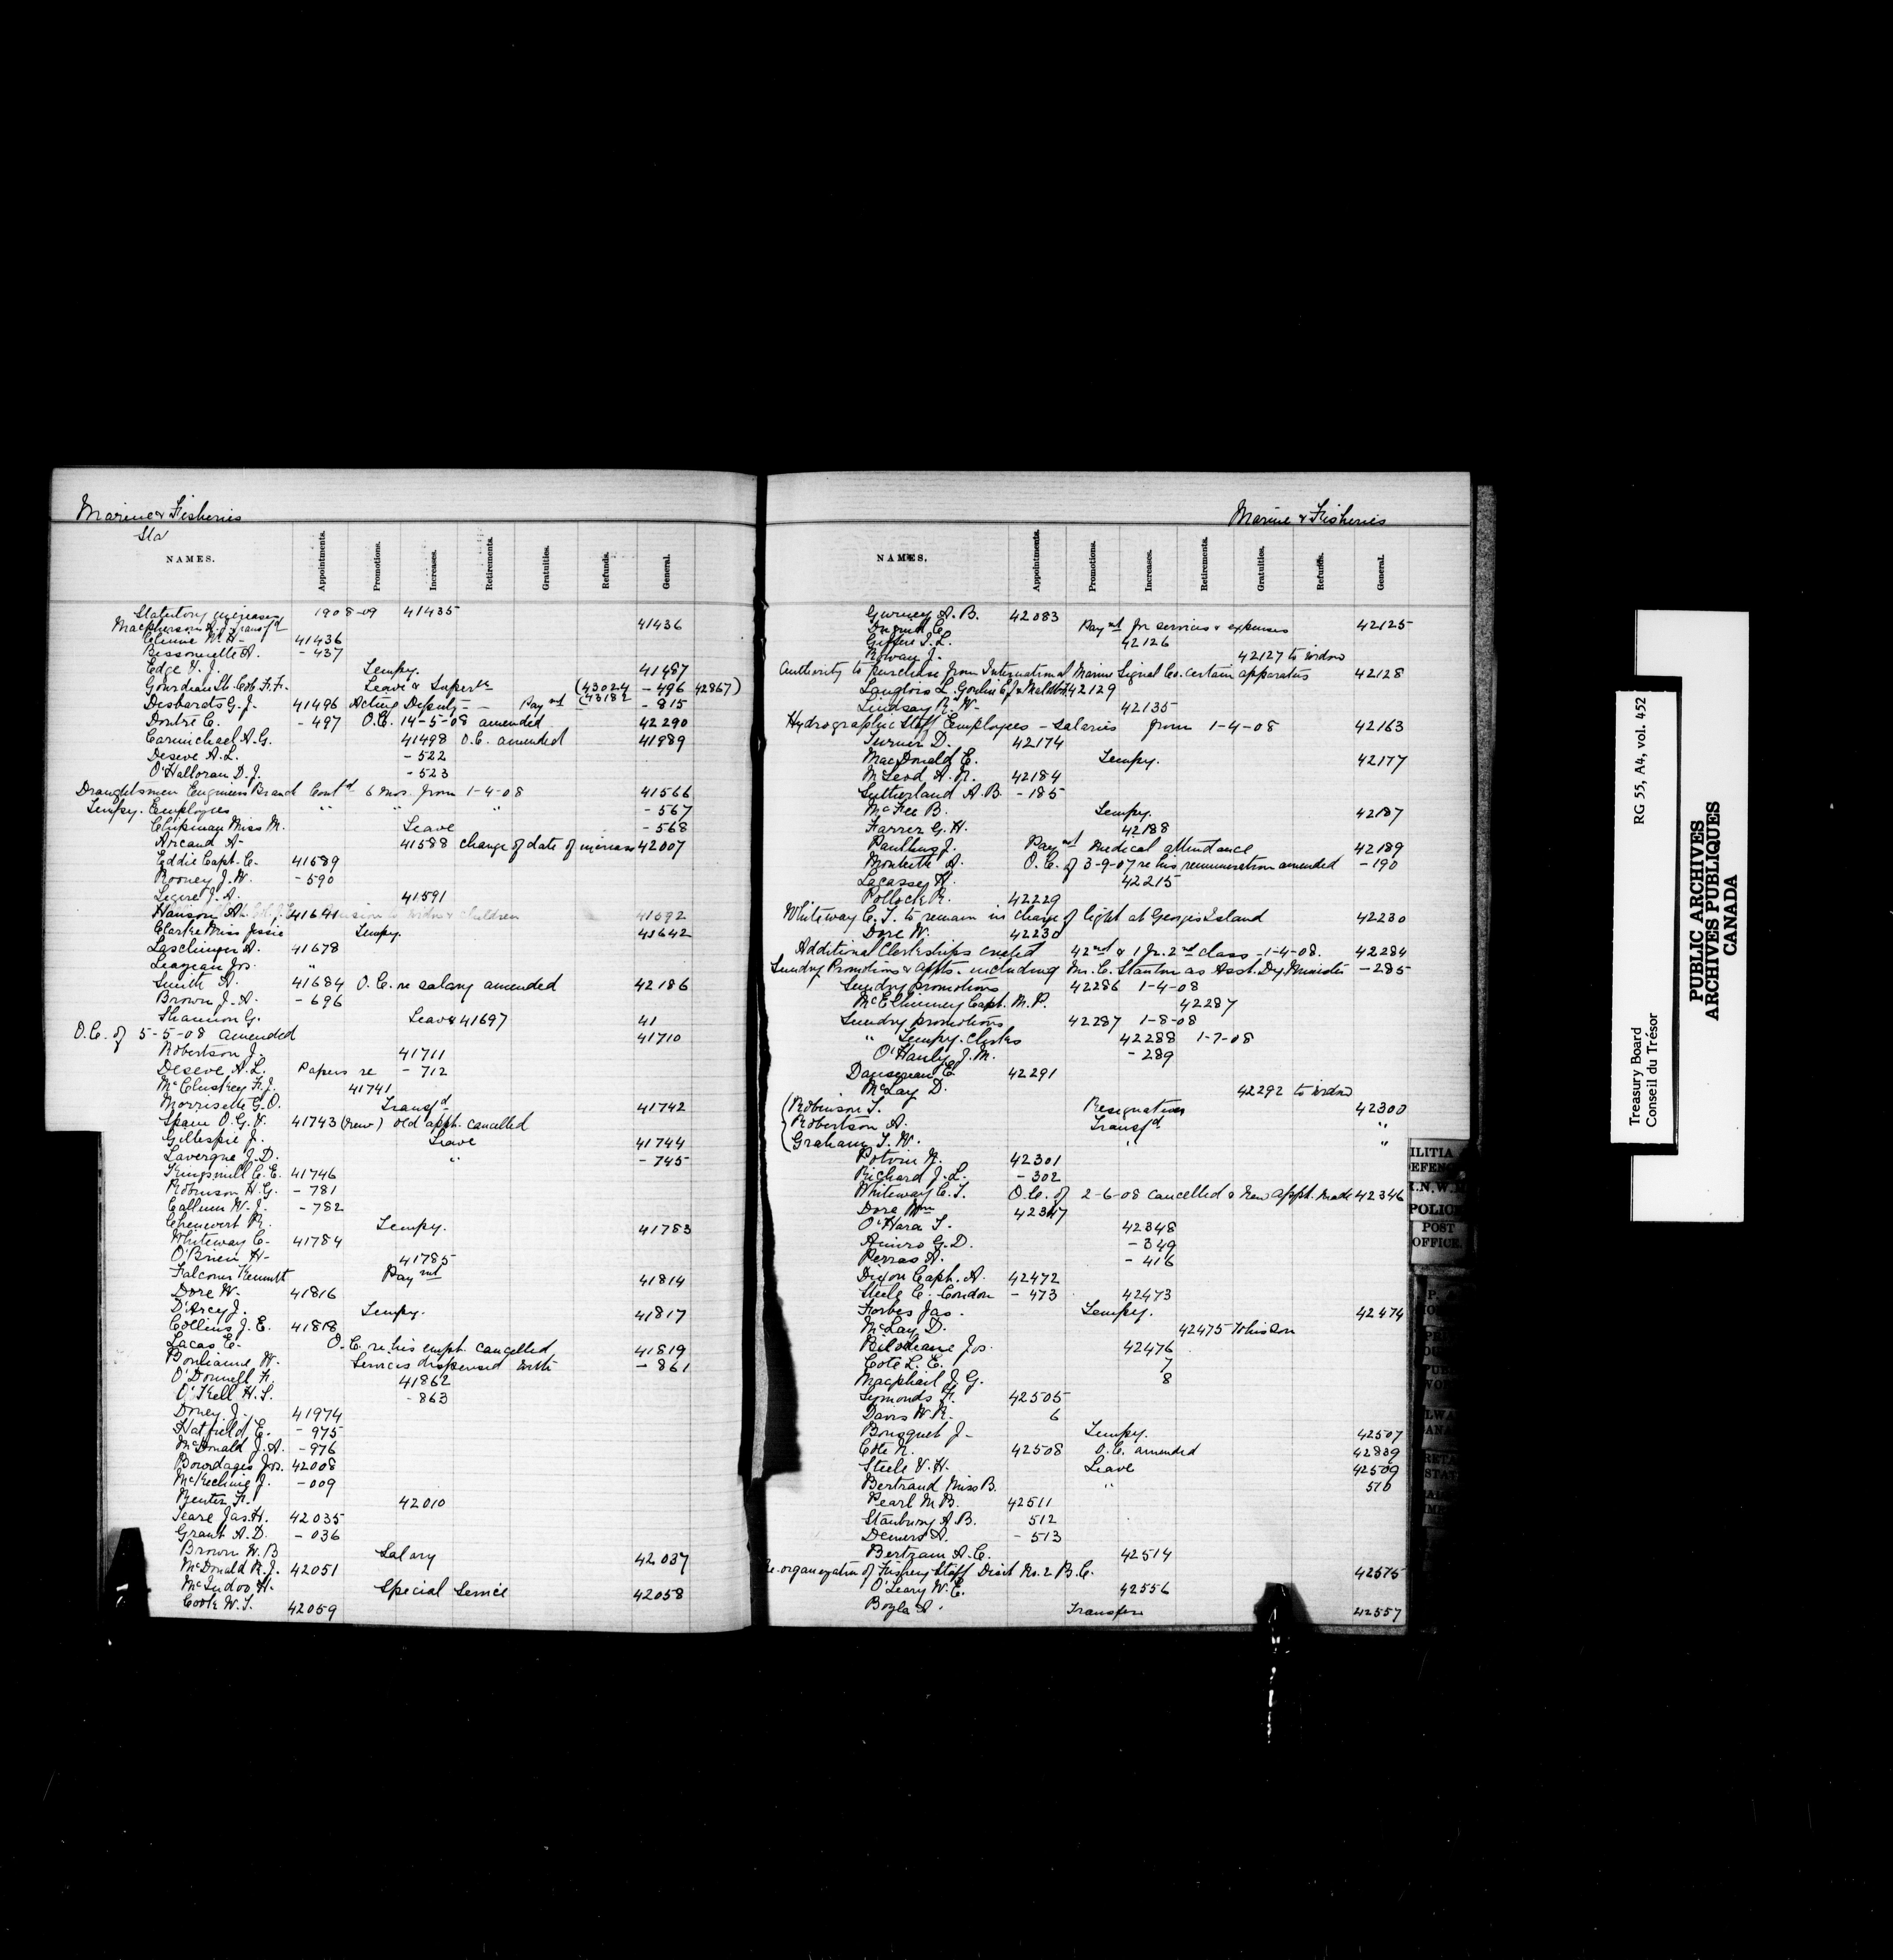 Marine & Fisheries
Sta
NAMES. Appointments. Promotions. Increases. Retirements. Gratuities. Refunds. General.
Statutory increases 1908-09 41435
Macpherson A.J. Transf'd 41436
Clunne M. H- 41436
Bissonnette A. - 437
Edge V. J. Tempy. 41487
Gourdeau Lt. Col. F. F. Leave & Superan (43024 - 496 42867)
Desbarats G. J. 41496 Acting Deputy - - Paymt (43182 - 815
Doutre C. - 497 O.C. 14-5-08 amended 42290
Carmichael A. G. 41498 O.C. amended 41989
Deseve A. L. - 522
O'Halloran D. J. - 523
Draughtsmen Engineers Branch Cont'd 6 mos. from 1-4-08 41566
Tempy. Employees " " " - 567
Chipman Miss M. Leave - 568
Arcand A- 41588 change of date of increase 42007
Eddie Capt. C. 41589
Rooney J. W. - 590
Legere J. A. 41591
Hanson 41641 widow & children 41592
Clarke Miss Jessie Tempy. 41642
Laschinger A. 41678
Jos. "
Smith A. 41684 O.C. re salary amended 42186
Brown J. A. - 696
Shannon G. Leave 41697 41
O.C. of 5-5-08 amended 41710
Robertson J. 41711
Deseve A. L. Papers re - 712
McCluskey F. J. 41741
Morrisette G. O. Transf'd 41742
Spain O. G. V. 41743 (new) old appt. cancelled
Gillespie J. Leave 41744
Lavergne J. D. " - 745
Kingsmill C. E. 41746
Robinson H. G. - 781
Callum W. J. - 782
Chenevert R. Tempy. 41783
Whiteway C- 41784
O'Brien H- 41785
Falconer Kenneth Paymt 41814
Dore W. 41816
D'Arcy J. Tempy. 41817
Collins J. E. 41818
Lacas E- O.C. re his empt. cancelled 41819
Bonhanme W. Services dispensed with - 861
O'Donnell F. 41862
O'Kell H. S. - 863
Doney J. 41974
Hatfield C. - 975
McDonald J. A. - 976
Bourdages Jos. 42008
McKechnie J. - 009
Renter F. 42010
Teare Jas. H. 42035
Grant A. D. - 036
Brown W. B Salary 42037
McDonald R. J. 42051
McIndoo H. Special Service 42058
Cook W. S. 42059
Marine & Fisheries
NAMES. Appointments. Promotions. Increases. Retirements. Gratuities. Refunds. General.
Gurney A. B. 42083
Duguid C. Paymt for services & expenses 42125
Giffin I. L. 42126
Rowan J. 42127 to widow
Authority to purchase from International Marine Signal Co. certain apparatus 42128
Langlois L. 42129
Lindsay R. W- 42135
Hydrographic Staff Employees - Salaries from 1-4-08 42163
Turner D. 42174
MacDonald E. Tempy. 42177
McLeod A. N. 42184
Sutherland A. B. - 185
McFee B. Tempy. 42187
Farrer G. H. 42188
Paulhus J. Paymt medical attendance 42189
Monteith A. O.C. of 3-9-07 re his remuneration amended - 190
Lacassey H. 42215
Pollock R. 42229
Whiteway C. T. to remain in charge of light at Georges Island 42230
Dore W. 42230
Additional Clerkships created 4 2nd & 1 Jr. 2nd class - 1-4-08. 42284
Sundry Promotions & appts. including Mr. C. Stanton as Asst. Dy Minister - 285
Sundry promotions 42286 1-4-08
McElhinney Capt. M. P. 42287
Sundry promotions 42287 1-8-08
" Tempy. Clerks 42288 1-7-08
O'Hanly J. M. - 289
Dansereau E 42291
McLay D. 42292 to widow
(Robinson T. Resignation 42300
(Robertson A. Transf'd "
(Graham T. W. " "
Potvin N. 42301
Richard J. L. - 302
Whiteway C. T. O.C. of 2-6-08 cancelled & new appt. made 42346
Dore Wm 42347
O'Hara T. 42348
Amiro G. D. - 349
Perras A. - 416
Dixon Capt. A. 42472
Steele C. Condon - 473 42473
Forbes Jas. Tempy. 42474
McLay D. 42475 to his son
Bilodeau Jos. 42476
Cote L. E. 7
Macphail J. G. 8
Symonds F. 42505
Davis W. R. 6
Bousquet J- Tempy. 42507
Cote N. 42508 O.C. amended 42839
Steele V. H. Leave 42509
Bertrand Miss B. " 510
Pearl M. B. 42511
Stanbury A. B. 512
Demers A. - 513
Bertram A. C. 42514
Re-organization of Fishery Staff Dist. No. 2 B.C. 42575
O'Leary W. E. 42556
Boyle A. Transfer 42557
ILITIA
EFENC
N.W.
POLICE
POST
OFFICE.
RG 55, A4, vol. 452
Treasury Board
Conseil du Trésor
PUBLIC ARCHIVES
ARCHIVES PUBLIQUES
CANADA